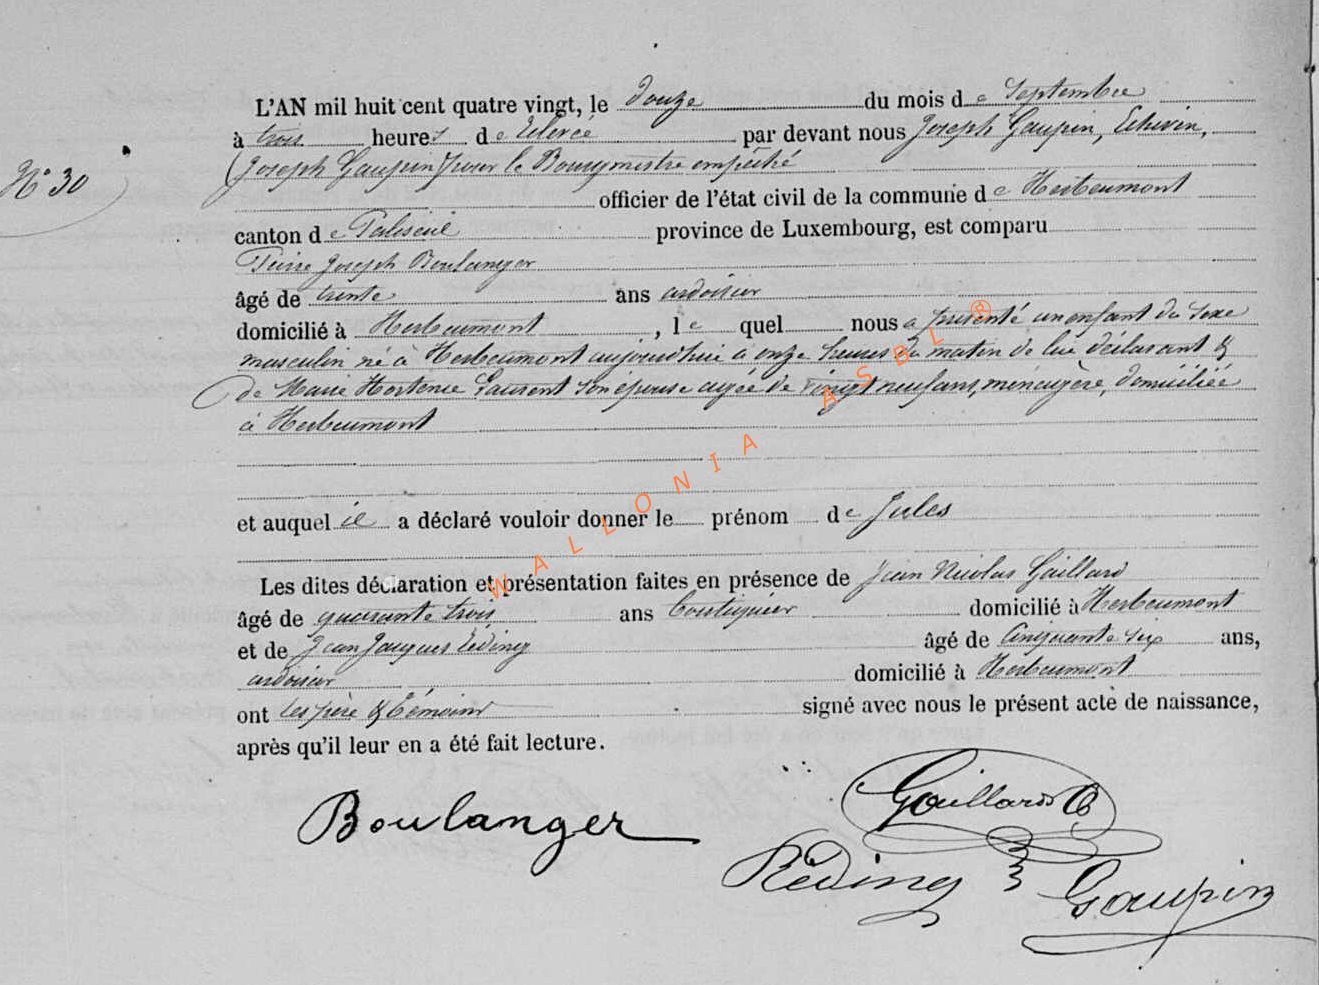 L'AN mil huit cent quatre vingt, le douze du mois de Septembre
à trois heures de relevé par devant nous Joseph Gaupin, Echevin,
N° 30
(Joseph Gaupin) pour le Bourgmestre empêché
officier de l'état civil de la commune de Herbeumont
canton de Paliseul province de Luxembourg, est comparu
Pierre Joseph Boulanger
âgé de trente ans ardoisier
domicilié à Herbeumont, le quel nous a présenté un enfant du sexe
masculin né à Herbeumont aujourd'hui à onze heures du matin de lui déclarant &
de Marie Hortence Laurent son épouse agée de vingt neuf ans, ménagère, domiciliée
à Herbeumont
et auquel il a déclaré vouloir donner le prénom de Jules
Les dites déclaration et présentation faites en présence de Jean Nicolas Gaillard
âgé de quarante trois ans boutiquier domicilié à Herbeumont
et de Jean Jacques Réding âgé de Cinquante six ans,
ardoisier domicilié à Herbeumont
ont les père & témoins signé avec nous le présent acte de naissance,
après qu'il leur en a été fait lecture.
Boulanger
Gaillard
Réding
Gaupin
WALLONIA ASBL ®